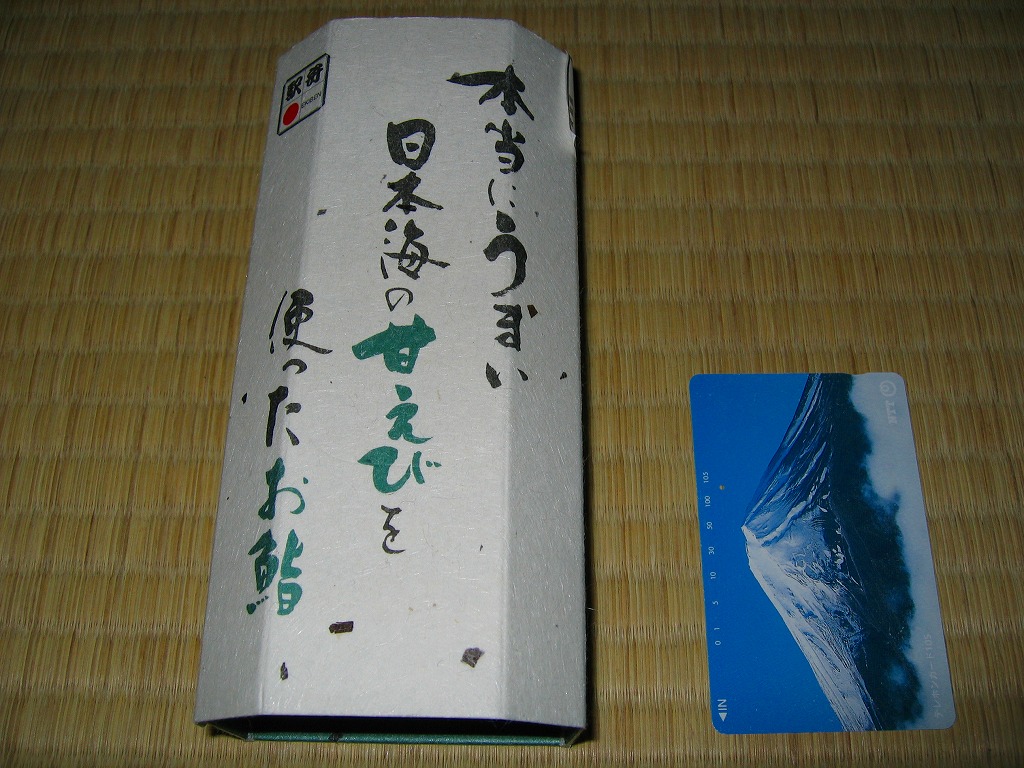 本当にうまい
日本海の甘えびを
使ったお鮨
駅弁
EKIBEN
NTT
テレホンカード105
0 1 5 10 30 50 100 105
◀IN